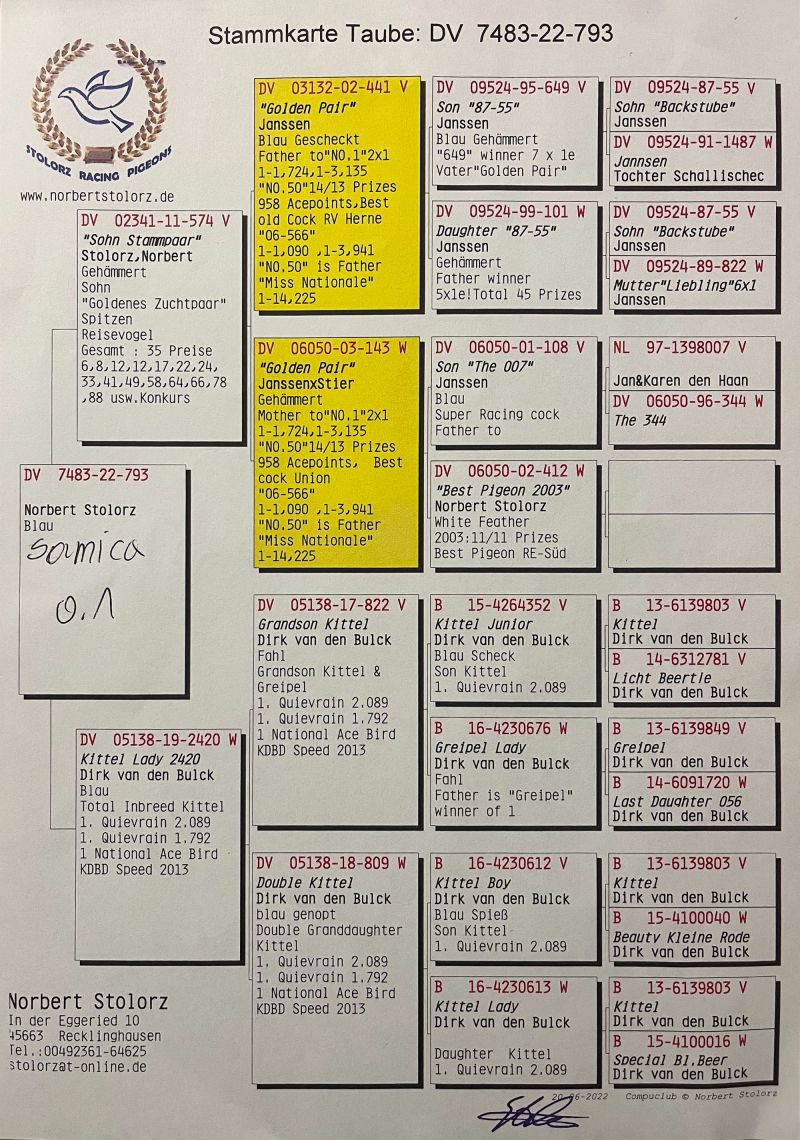 Stammkarte Taube: DV 7483-22-793
STOLORZ RACING PIGEONS
www.norbertstolorz.de
DV 7483-22-793
Norbert Stolorz
Blau
samica
0.1
DV 02341-11-574 V
"Sohn Stammpaar"
Stolorz,Norbert
Gehämmert
Sohn
"Goldenes Zuchtpaar"
Spitzen
Reisevogel
Gesamt : 35 Preise
6,8,12,12,17,22,24,
33,41,49,58,64,66,78
,88 usw.Konkurs
DV 05138-19-2420 W
Kittel Lady 2420
Dirk van den Bulck
Blau
Total Inbreed Kittel
1. Quievrain 2.089
1. Quievrain 1.792
1 National Ace Bird
KDBD Speed 2013
DV 03132-02-441 V
"Golden Pair"
Janssen
Blau Gescheckt
Father to"NO.1"2x1
1-1,724,1-3,135
"NO.50"14/13 Prizes
958 Acepoints,Best
old Cock RV Herne
"06-566"
1-1,090 ,1-3,941
"NO.50" is Father
"Miss Nationale"
1-14,225
DV 06050-03-143 W
"Golden Pair"
JanssenxStier
Gehämmert
Mother to"NO.1"2x1
1-1,724,1-3,135
"NO.50"14/13 Prizes
958 Acepoints, Best
cock Union
"06-566"
1-1,090 ,1-3,941
"NO.50" is Father
"Miss Nationale"
1-14,225
DV 05138-17-822 V
Grandson Kittel
Dirk van den Bulck
Fahl
Grandson Kittel &
Greipel
1. Quievrain 2.089
1. Quievrain 1.792
1 National Ace Bird
KDBD Speed 2013
DV 05138-18-809 W
Double Kittel
Dirk van den Bulck
blau genopt
Double Granddaughter
Kittel
1. Quievrain 2.089
1. Quievrain 1.792
1 National Ace Bird
KDBD Speed 2013
DV 09524-95-649 V
Son "87-55"
Janssen
Blau Gehämmert
"649" winner 7 x 1e
Vater"Golden Pair"
DV 09524-99-101 W
Daughter "87-55"
Janssen
Gehämmert
Father winner
5x1e!Total 45 Prizes
DV 06050-01-108 V
Son "The 007"
Janssen
Blau
Super Racing cock
Father to
DV 06050-02-412 W
"Best Pigeon 2003"
Norbert Stolorz
White Feather
2003:11/11 Prizes
Best Pigeon RE-Süd
B 15-4264352 V
Kittel Junior
Dirk van den Bulck
Blau Scheck
Son Kittel
1. Quievrain 2.089
B 16-4230676 W
Greipel Lady
Dirk van den Bulck
Fahl
Father is "Greipel"
winner of 1
B 16-4230612 V
Kittel Boy
Dirk van den Bulck
Blau Spieß
Son Kittel
1. Quievrain 2.089
B 16-4230613 W
Kittel Lady
Dirk van den Bulck
Daughter Kittel
1. Quievrain 2.089
DV 09524-87-55 V
Sohn "Backstube"
Janssen
DV 09524-91-1487 W
Jannsen
Tochter Schallischec
DV 09524-87-55 V
Sohn "Backstube"
Janssen
DV 09524-89-822 W
Mutter"Liebling"6x1
Janssen
NL 97-1398007 V
Jan&Karen den Haan
DV 06050-96-344 W
The 344
B 13-6139803 V
Kittel
Dirk van den Bulck
B 14-6312781 V
Licht Beertle
Dirk van den Bulck
B 13-6139849 V
Greipel
Dirk van den Bulck
B 14-6091720 W
Last Daughter 056
Dirk van den Bulck
B 13-6139803 V
Kittel
Dirk van den Bulck
B 15-4100040 W
Beauty Kleine Rode
Dirk van den Bulck
B 13-6139803 V
Kittel
Dirk van den Bulck
B 15-4100016 W
Special Bl.Beer
Dirk van den Bulck
Norbert Stolorz
In der Eggeried 10
45663 Recklinghausen
Tel.:00492361-64625
stolorz@t-online.de
20-06-2022 Compuclub © Norbert Stolorz